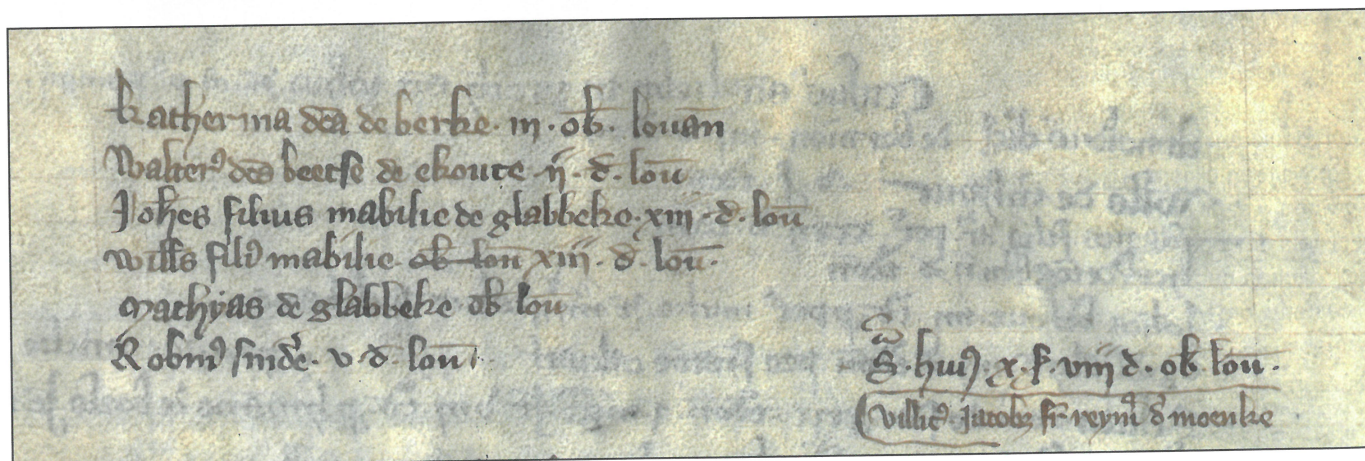 katherina dc̄a de berke · iii · ob̄ · louan̄
Walter⁹ dc̄s beetse de ekoute · ii · d̄ · loū
Joh̄es filius mabilie de glabbeke · xiii · d̄ · loū
will̄s fili⁹ mabilie · ob̄ loū xiii · d̄ · loū ·
Mathyas de glabbeke ob̄ loū
Robin⁹ · v · d̄ · loū ·
S̄ · hui⁹ · x · s̄ · viii d · ob̄ · loū ·
villic⁹ · Jacob⁹ fr̄ reym̄ d̄ moenke